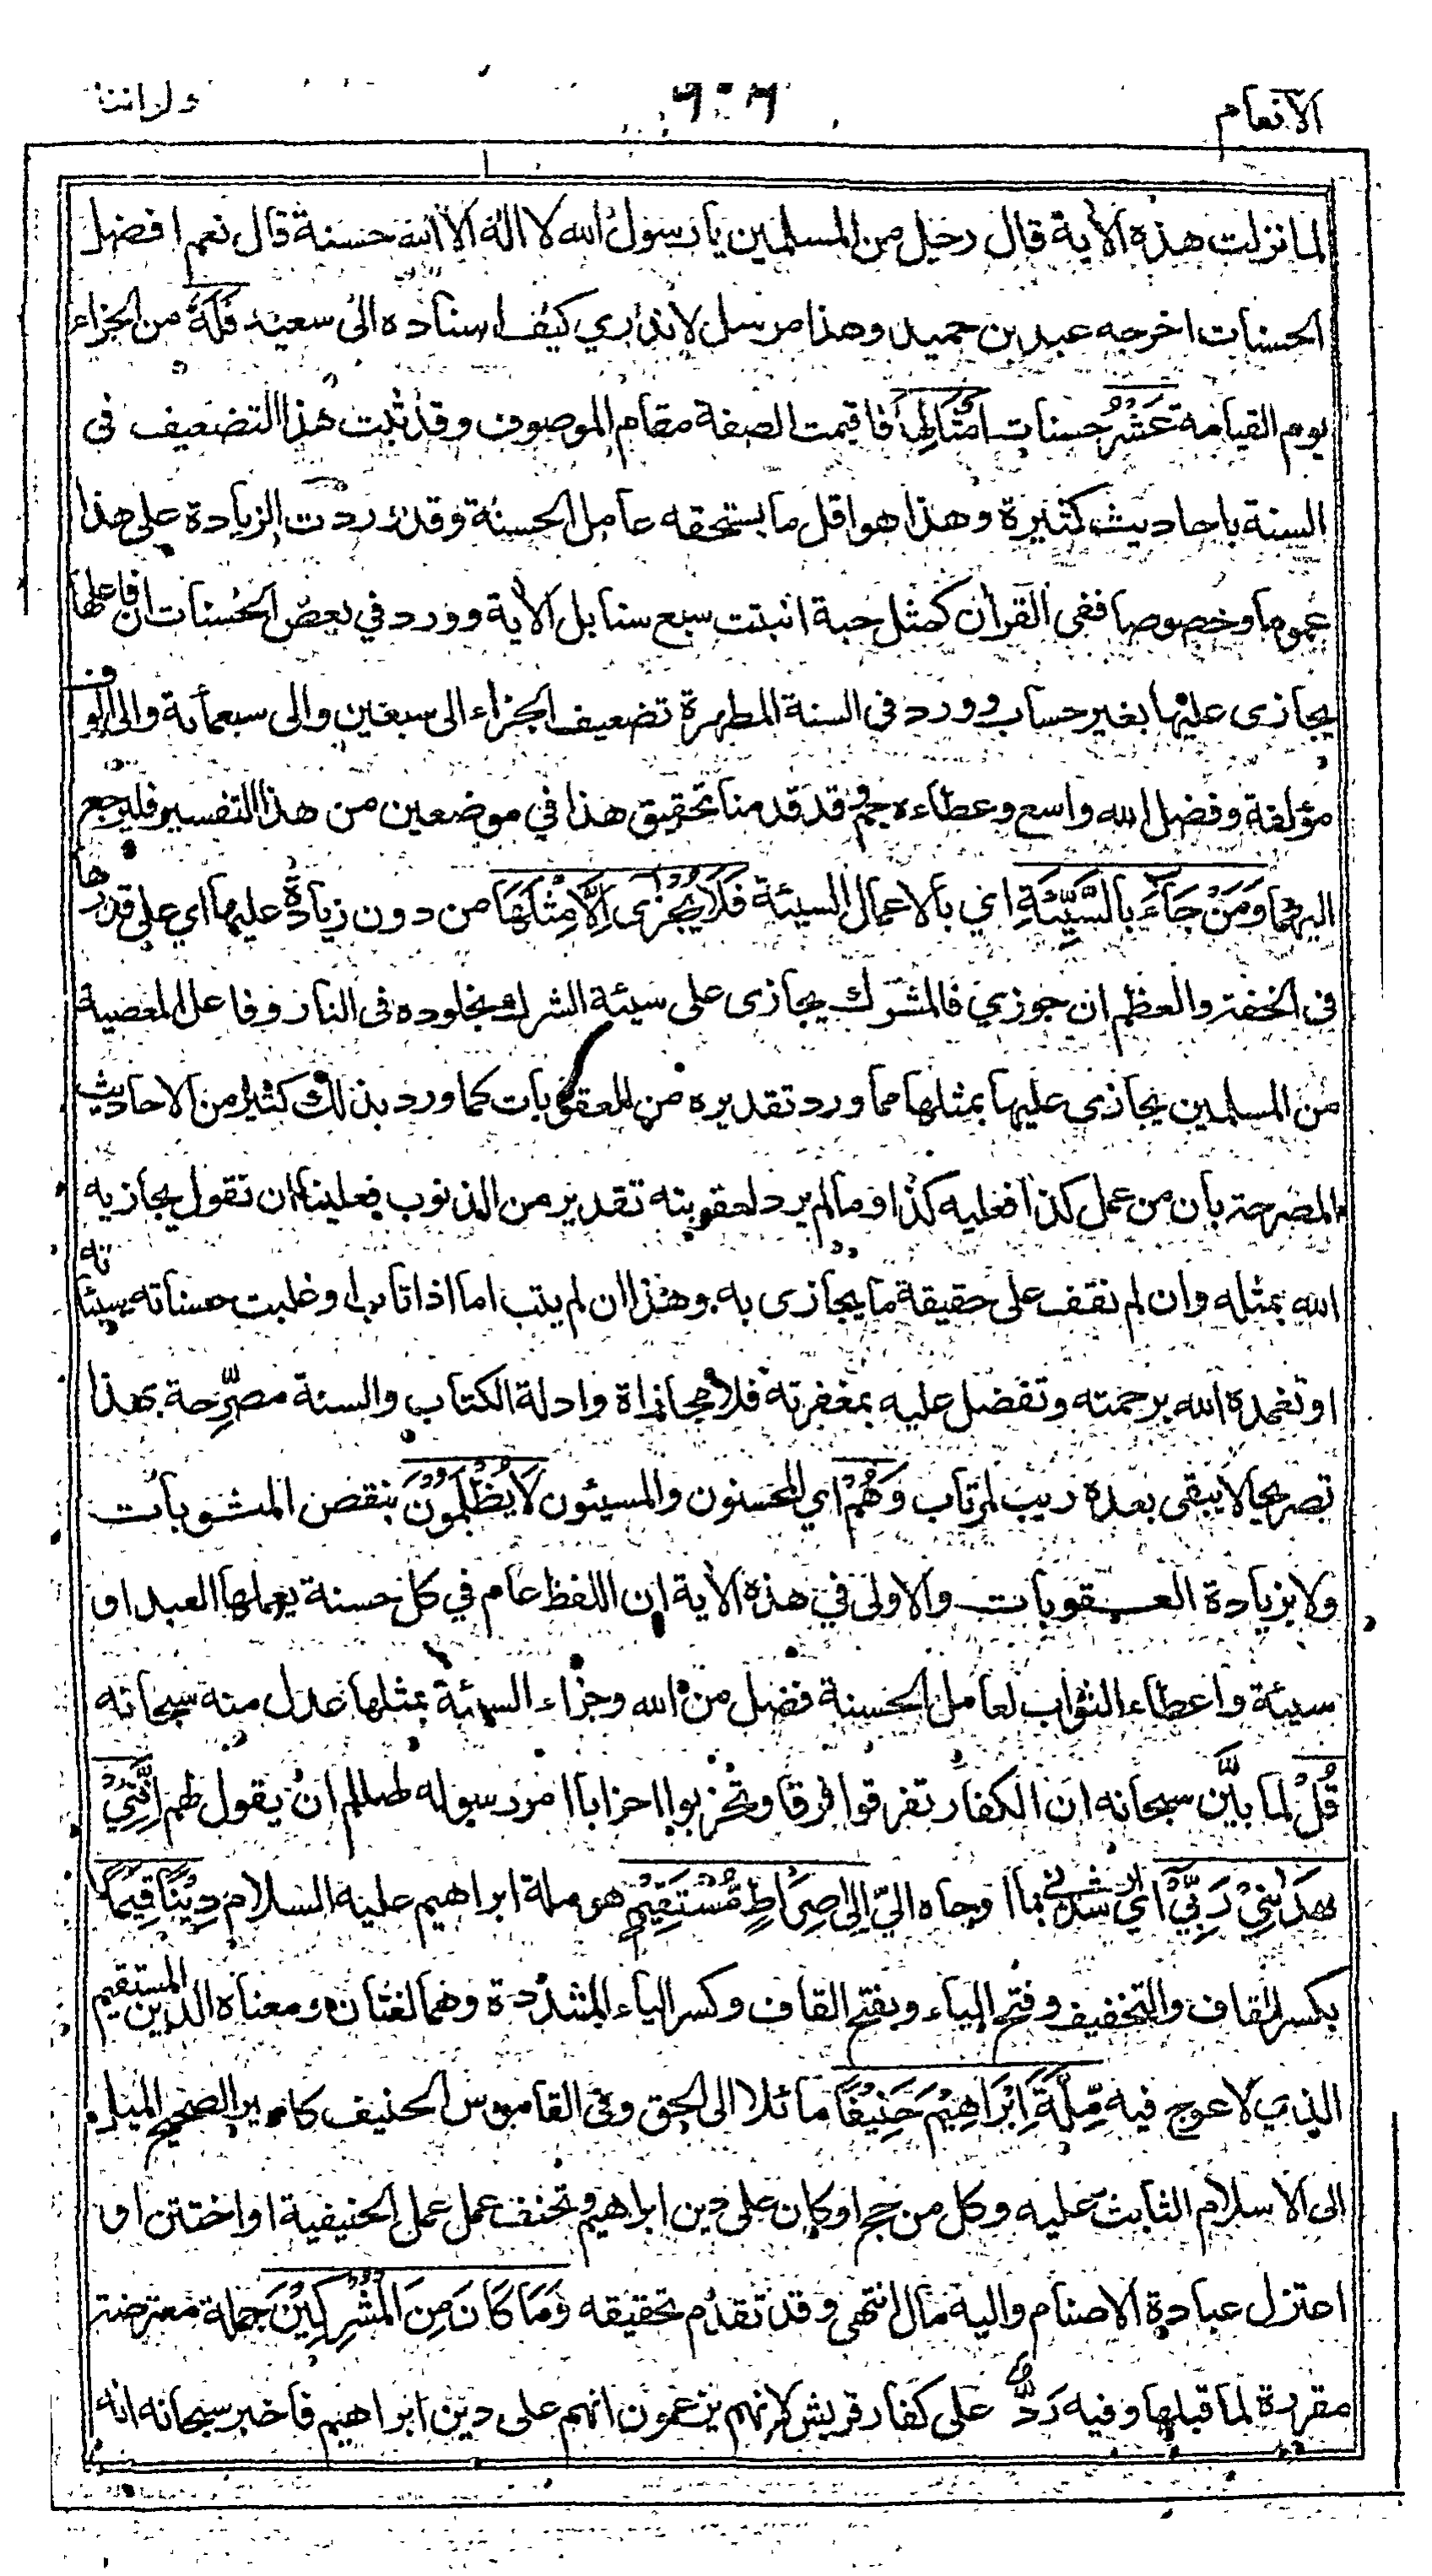 الانعام
لما نزلت هذه الأية قال رجل من المسلمين يا رسول الله لا اله الا الله حسنة قال نعم افضل
الحسنات اخرجه عبد بن حميد وهذا مرسل لا ندري كيف اسناده الى سعيد فَلَهٗ من الجزاء
يوم القيامة عَشْرُ حسنات اَمْثَالِهَا فاقيمت الصفة مقام الموصوف وقد ثبت هذا التضعيف في
السنة باحاديث كثيرة وهذا هو اقل ما يستحقه عامل الحسنة وقد وردت الزيادة على هذا
عموما وخصوصا ففى القرأن كمثل حبة انبتت سبع سنابل الأية وورد في بعض الحسنات ان فاعلها
يجازى عليها بغير حساب وورد فى السنة المطهرة تضعيف الجزاء الى سبعين والى سبعمأية والى الوف
مؤلفة وفضل الله واسع وعطاءه جم وقد قدمنا تحقيق هذا في موضعين من هذا التفسير فليرجع
اليهما وَمَنْ جَآءَ بِالسَّيِّئَةِ اي بالاعمال السيئة فَلَا يُجْزٰى اِلَّا مِثْلَهَا من دون زيادة عليها اي على قدرها
فى الخفة والعظم ان جوزي فالمشرك يجازى على سيئة الشرك بخلوده فى النار وفاعل المعصية
من المسلمين يجازى عليها بمثلها مما ورد تقديره من العقوبات كما ورد بذلك كثير من الاحاديث
المصرحة بان من عمل كذا فعليه كذا وما لم يرد لعقوبته تقدير من الذنوب فعلينا ان نقول يجازيه
الله بمثله وان لم نقف على حقيقة ما يجازى به وهذا ان لم يتب اما اذا تاب او غلبت حسناته سيئاته
او تغمده الله برحمته وتفضل عليه بمغفرته فلا مجازاة وادلة الكتاب والسنة مصرِّحة بهذا
تصريحا لا يبقى بعده ريب لمرتاب وَهُمْ اي المحسنون والمسيئون لَا يُظْلَمُوْنَ بنقص المثوبات
ولا بزيادة العقوبات والاولى في هذه الأية ان اللفظ عام في كل حسنة يعملها العبد او
سيئة واعطاء الثواب لعامل الحسنة فضل من الله وجزاء السيئة بمثلها عدل منه سبحانه
قُلْ لما بيَّن سبحانه ان الكفار تفرقوا فرقا وتحزبوا احزابا امر رسوله صللم ان يقول لهم اِنَّنِيْ
هَدٰىنِيْ رَبِّيْ اي ارشدني بما اوحاه اليّ اِلٰى صِرَاطٍ مُّسْتَقِيْمٍ هو ملة ابراهيم عليه السلام دِيْنًا قِيَمًا
بكسر القاف والتخفيف وفتح الياء وبفتح القاف وكسر الياء المشددة وهما لغتان ومعناه الدين المستقيم
الذي لا عوج فيه مِّلَّةَ اِبْرَاهِيْمَ حَنِيْفًا مائلا الى الحق وفى القاموس الحنيف كامير الصحيح الميل
الى الاسلام الثابت عليه وكل من حج او كان على دين ابراهيم وتحنف عمل عمل الحنيفية او اختتن او
اعتزل عبادة الاصنام واليه مال انتهى وقد تقدم تحقيقه وَمَا كَانَ مِنَ الْمُشْرِكِيْنَ جملة معترضة
مقررة لما قبلها وفيه رَدٌّ على كفار قريش لانهم يزعمون انهم على دين ابراهيم فاخبر سبحانه انه